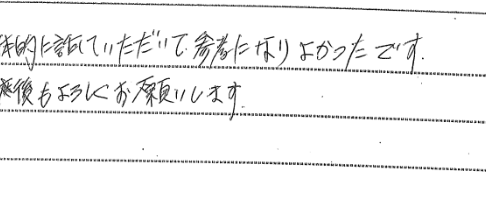 体的に話していただいて参考になりよかったです.
今後もよろしくお願いします.